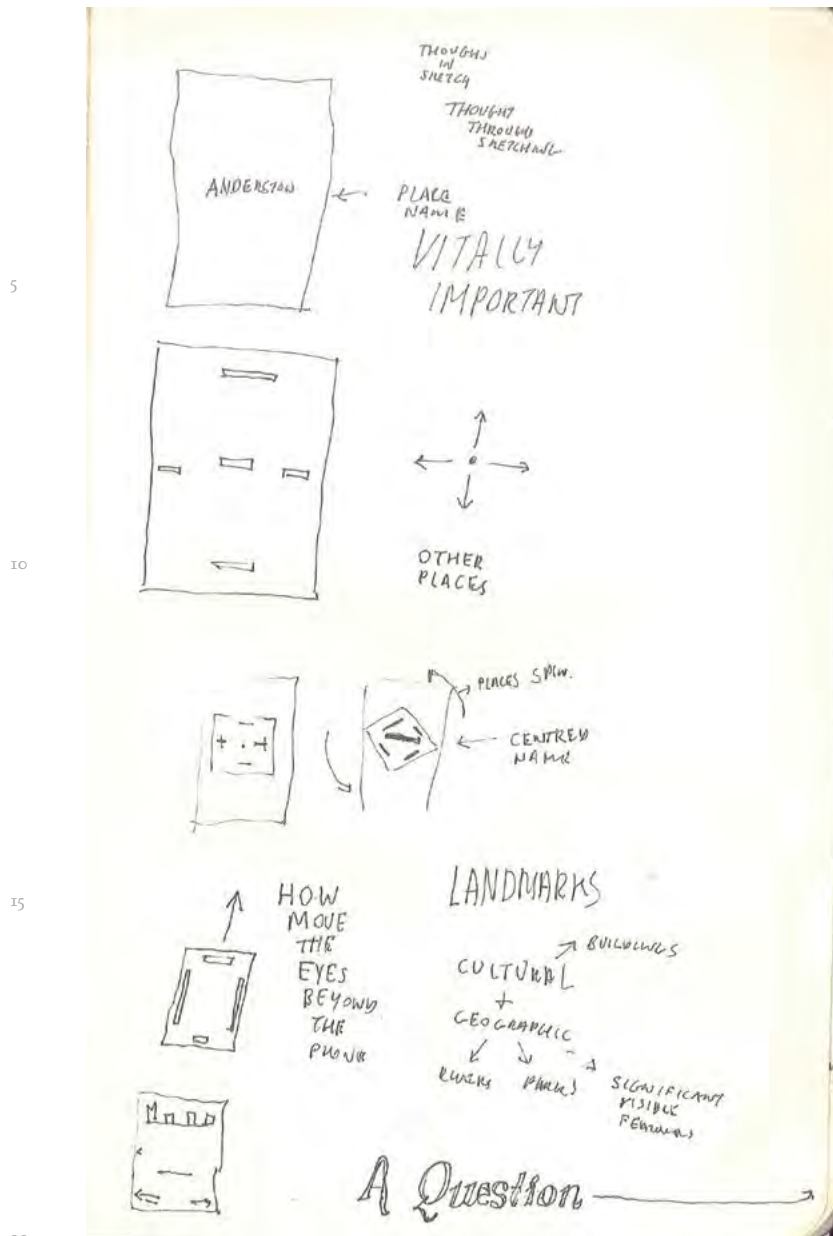 THOUGHS
IN
SKETCH
THOUGHT
THROUGH
SKETCHING
ANDERSTON
PLACE
NAME
VITALLY
IMPORTANT
5
OTHER
PLACES
10
PLACES SPIN.
CENTRED
NAME
15
HOW
MOVE
THE
EYES
BEYOND
THE
PHONE
LANDMARKS
BUILDINGS
CULTURAL
+
GEOGRAPHIC
RIVERS PARKS
SIGNIFICANT
VISIBLE
FEATURES
A Question